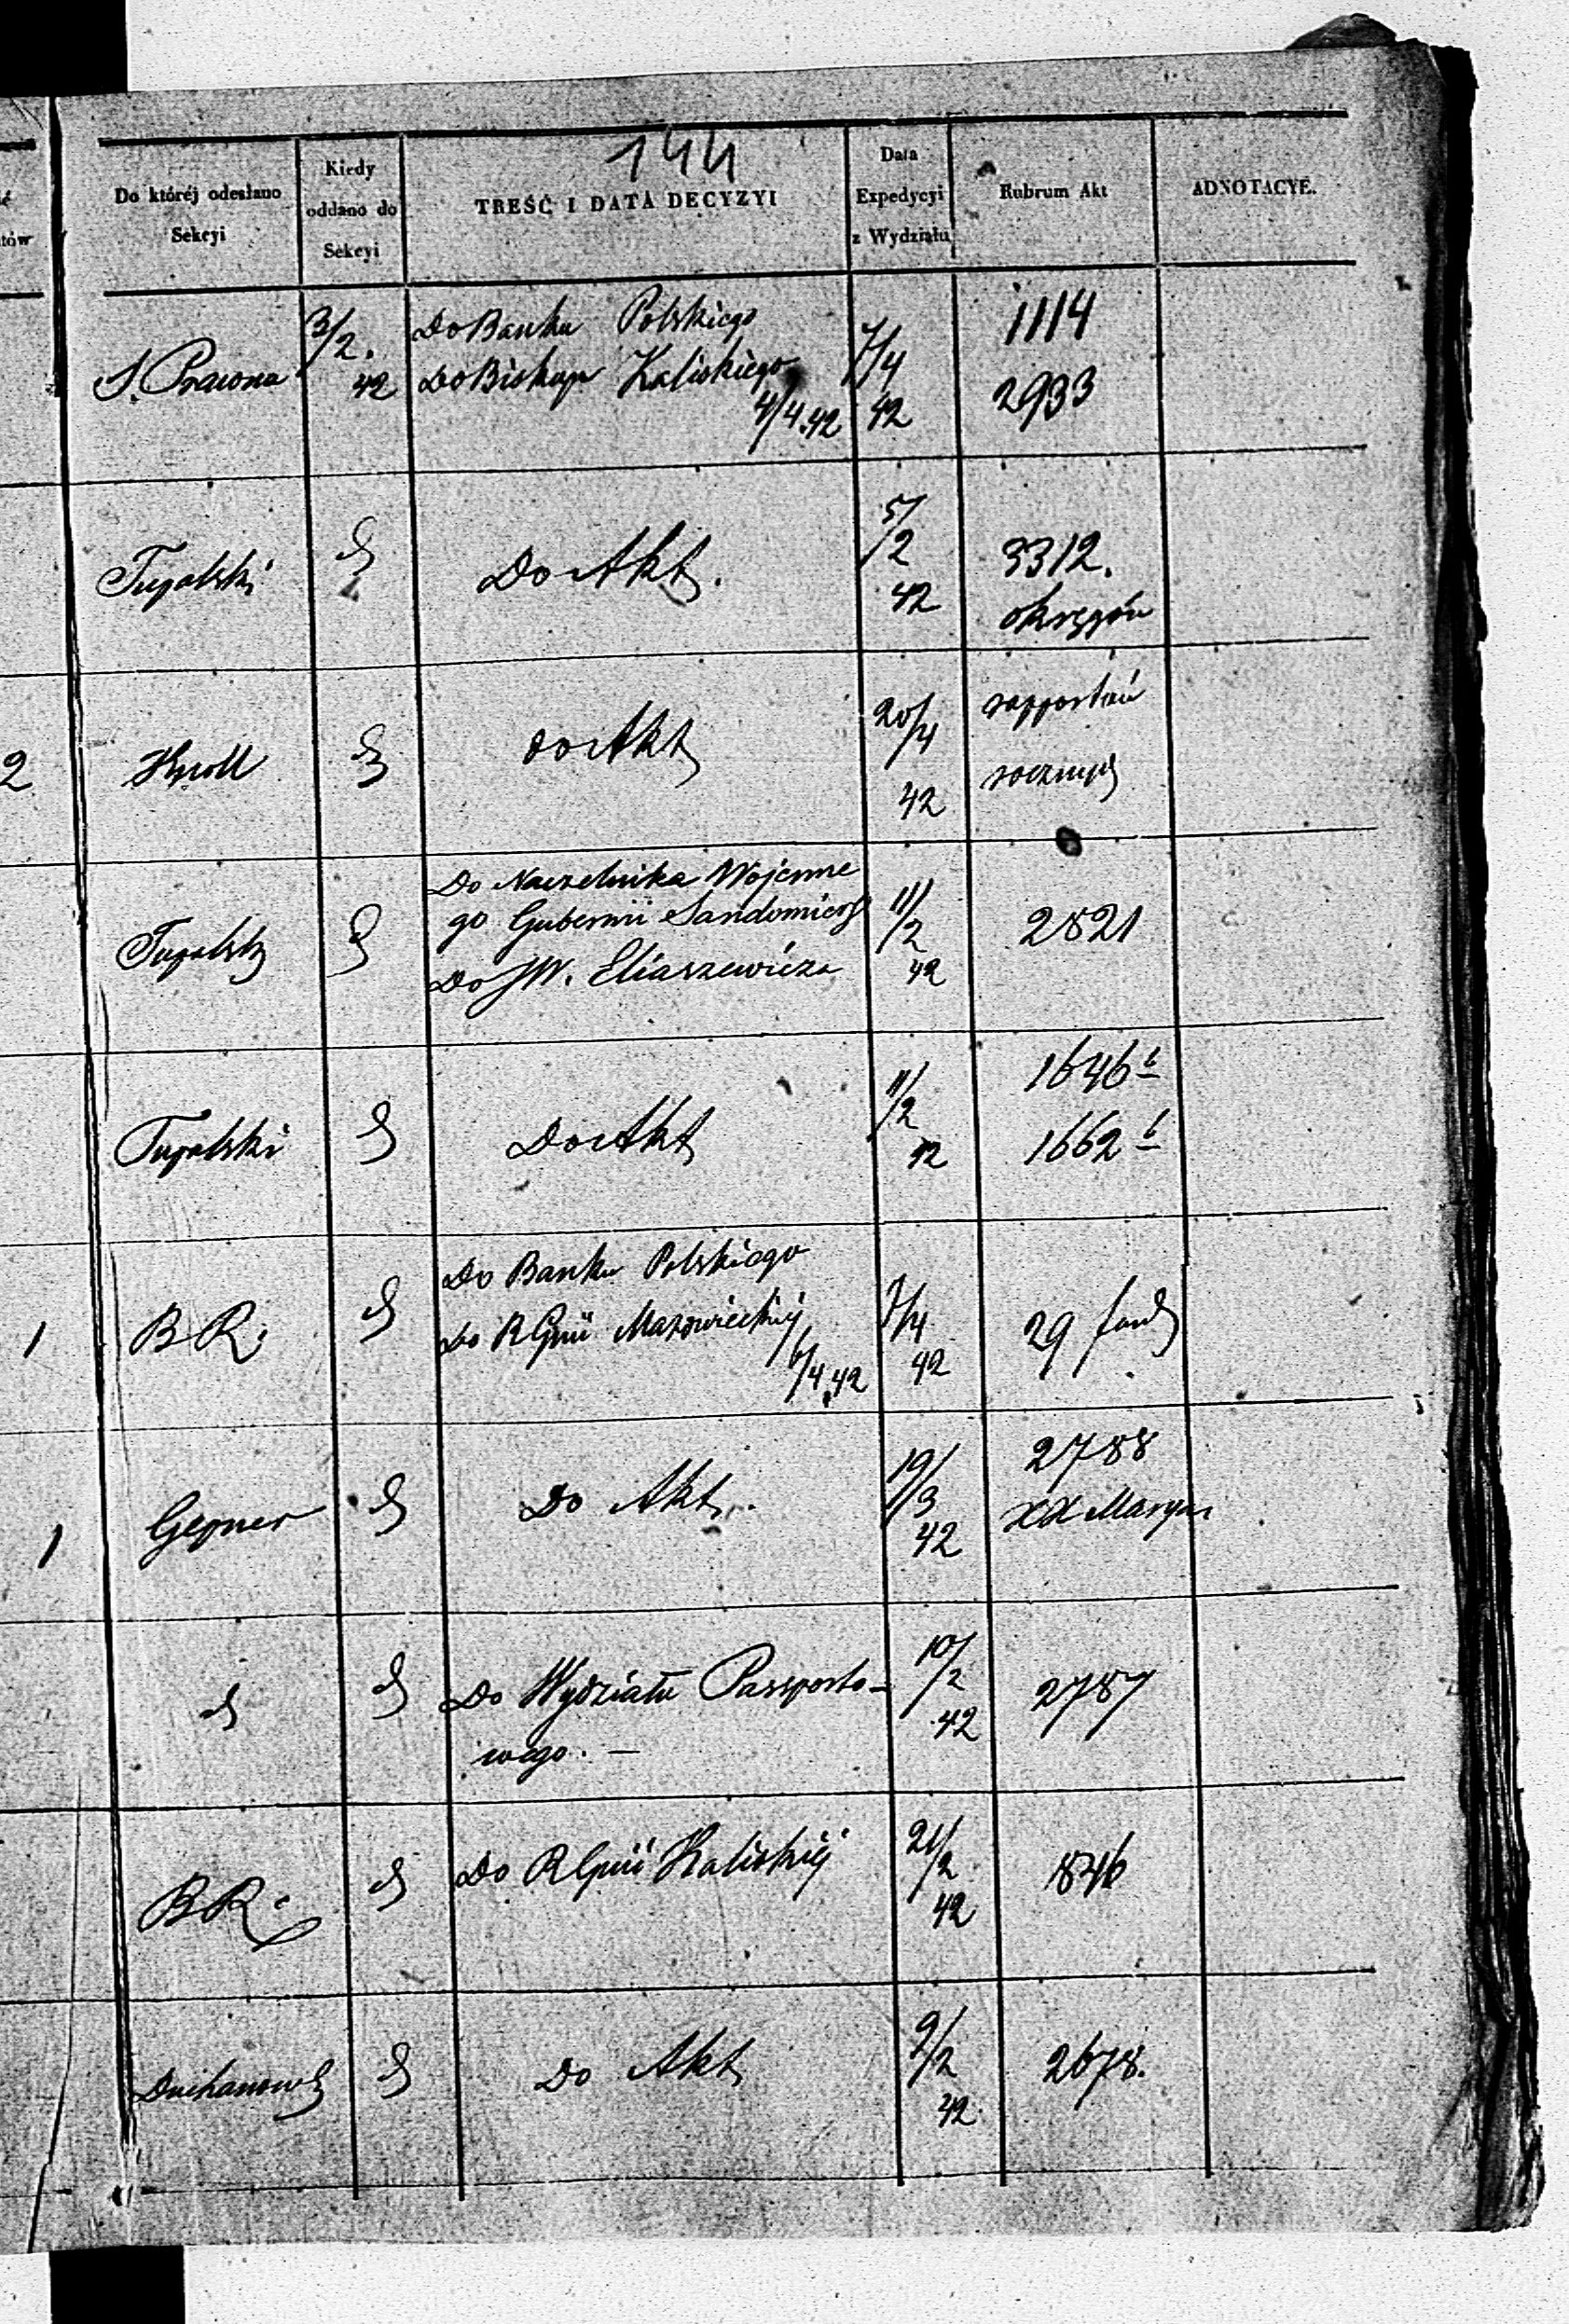 144
Do któréj odesłano
Sekcyi
Kiedy
oddano do
Sekcyi
TREŚĆ I DATA DECYZYI
Data
Expedycyi
z Wydziału
Rubrum Akt
ADNOTACYE.
S. Prawna
3/2.
42
Do Banku Polskiego
Do Biskupa Kaliskiego
4/4.42
7/4
42
1114
2933
Tupalski
Do Akt.
5/2
42
3312.
okręgów
2
Kroll
do Akt
20/4
42
rapportów
Tupalsk
Do Naczelnika Wojenne
go Gubernii Sandomiersk
Do JW. Eliaszewicza
11/2
42
2821
Tupalski
Do Akt
11/2
42
1646 b
1662 b
1
BR.
Do Banku Polskiego
Do RGnii Mazowieckiéj
6/4.42
7/4
42
29
1
Gepner
Do Akt.
19/3
42
2788
XX Maryan
Do Wydziału Passporto-
wego. —
10/2
42
2787
BR.
Do RGnii Kaliskiéj
21/2
42
846
Duchanows
Do Akt
9/2
42
2678.